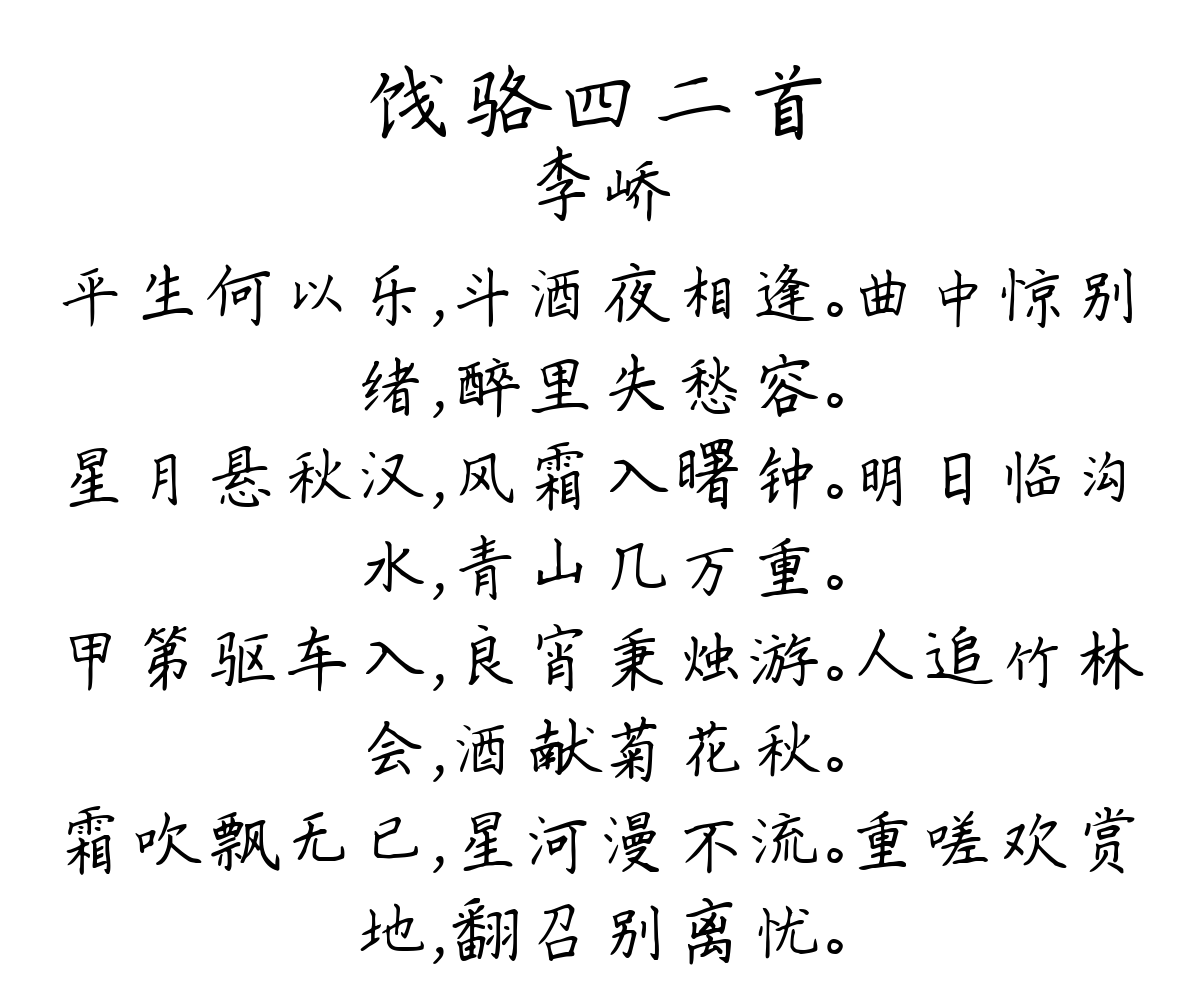 饯骆四二首
李峤
平生何以乐,斗酒夜相逢。曲中惊别
绪,醉里失愁容。
星月悬秋汉,风霜入曙钟。明日临沟
水,青山几万重。
甲第驱车入,良宵秉烛游。人追竹林
会,酒献菊花秋。
霜吹飘无已,星河漫不流。重嗟欢赏
地,翻召别离忧。